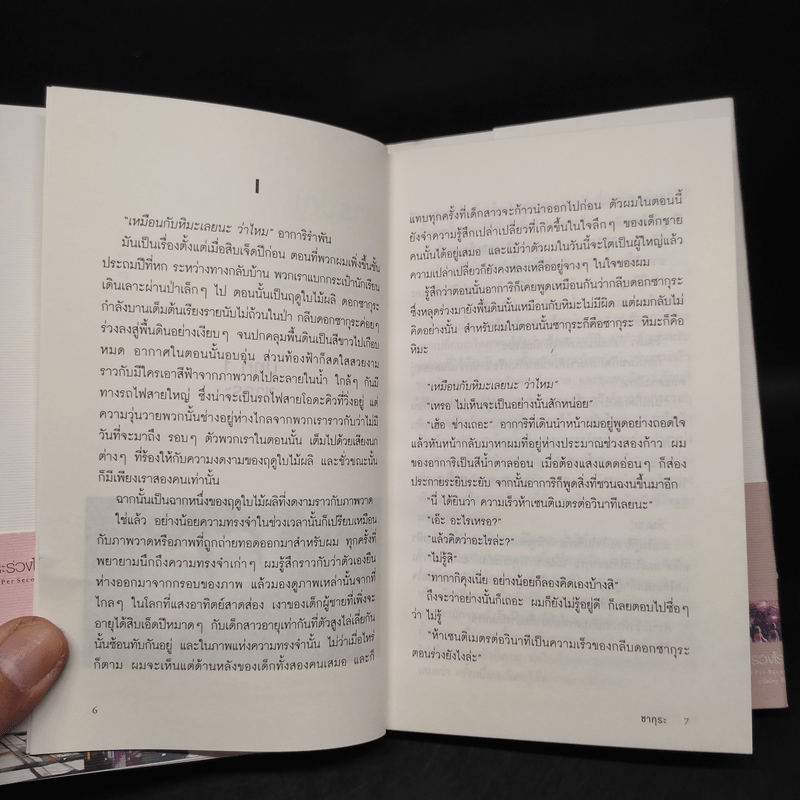 I
“เหมือนกับหิมะเลยนะ ว่าไหม” อาการิรำพัน
มันเป็นเรื่องตั้งแต่เมื่อสิบเจ็ดปีก่อน ตอนที่พวกผมเพิ่งขึ้นชั้น
ประถมปีที่หก ระหว่างทางกลับบ้าน พวกเราแบกกระเป๋านักเรียน
เดินเลาะผ่านป่าเล็กๆ ไป ตอนนั้นเป็นฤดูใบไม้ผลิ ดอกซากุระ
กำลังบานเต็มต้นเรียงรายนับไม่ถ้วนในป่า กลีบดอกซากุระค่อยๆ
ร่วงลงสู่พื้นดินอย่างเงียบๆ จนปกคลุมพื้นดินเป็นสีขาวไปเกือบ
หมด อากาศในตอนนั้นอบอุ่น ส่วนท้องฟ้าก็สดใสสวยงาม
ราวกับมีใครเอาสีฟ้าจากภาพวาดไปละลายในน้ำ ใกล้ๆ กันมี
ทางรถไฟสายใหญ่ ซึ่งน่าจะเป็นรถไฟสายโอดะคิวที่วิ่งอยู่ แต่
ความวุ่นวายพวกนั้นช่างอยู่ห่างไกลจากพวกเราราวกับว่าไม่มี
วันที่จะมาถึง รอบๆ ตัวพวกเราในตอนนั้น เต็มไปด้วยเสียงนก
ต่างๆ ที่ร้องให้กับความงดงามของฤดูใบไม้ผลิ และชั่วขณะนั้น
ก็มีเพียงเราสองคนเท่านั้น
ฉากนั้นเป็นฉากหนึ่งของฤดูใบไม้ผลิที่งดงามราวกับภาพวาด
ใช่แล้ว อย่างน้อยความทรงจำในช่วงเวลานั้นก็เปรียบเหมือน
กับภาพวาดหรือภาพที่ถูกถ่ายทอดออกมาสำหรับผม ทุกครั้งที่
พยายามนึกถึงความทรงจำเก่าๆ ผมรู้สึกราวกับว่าตัวเองยืน
ห่างออกมาจากกรอบของภาพ แล้วมองดูภาพเหล่านั้นจากที่
ไกลๆ ในโลกที่แสงอาทิตย์สาดส่อง เงาของเด็กผู้ชายที่เพิ่งจะ
อายุได้สิบเอ็ดปีหมาดๆ กับเด็กสาวอายุเท่ากันที่ตัวสูงไล่เลี่ยกัน
นั้นซ้อนทับกันอยู่ และในภาพแห่งความทรงจำนั้น ไม่ว่าเมื่อไหร่
ก็ตาม ผมจะเห็นแต่ด้านหลังของเด็กทั้งสองคนเสมอ และก็
6
แทบทุกครั้งที่เด็กสาวจะก้าวนำออกไปก่อน ตัวผมในตอนนี้
ยังจำความรู้สึกเปล่าเปลี่ยวที่เกิดขึ้นในใจลึกๆ ของเด็กชาย
คนนั้นได้อยู่เสมอ และแม้ว่าตัวผมในวันนี้จะโตเป็นผู้ใหญ่แล้ว
ความเปล่าเปลี่ยวก็ยังคงหลงเหลืออยู่จางๆ ในใจของผม
รู้สึกว่าตอนนั้นอาการิก็เคยพูดเหมือนกันว่ากลีบดอกซากุระ
ซึ่งหลุดร่วงมายังพื้นดินนั้นเหมือนกับหิมะไม่มีผิด แต่ผมกลับไม่
คิดอย่างนั้น สำหรับผมในตอนนั้นซากุระก็คือซากุระ หิมะก็คือ
หิมะ
“เหมือนกับหิมะเลยนะ ว่าไหม”
“เหรอ ไม่เห็นจะเป็นอย่างนั้นสักหน่อย”
“เฮ้อ ช่างเถอะ” อาการิที่เดินนำหน้าผมอยู่พูดอย่างถอดใจ
แล้วหันหน้ากลับมาหาผมที่อยู่ห่างประมาณช่วงสองก้าว ผม
ของอาการิเป็นสีน้ำตาลอ่อน เมื่อต้องแสงแดดอ่อนๆ ก็ส่อง
ประกายระยิบระยับ จากนั้นอาการิก็พูดสิ่งที่ชวนฉงนขึ้นมาอีก
“นี่ ได้ยินว่า ความเร็วห้าเซนติเมตรต่อวินาทีเลยนะ”
“เอ๊ะ อะไรเหรอ?”
“แล้วคิดว่าอะไรล่ะ?”
“ไม่รู้สิ”
“ทากากิคุงเนี่ย อย่างน้อยก็ลองคิดเองบ้างสิ”
ถึงจะว่าอย่างนั้นก็เถอะ ผมก็ยังไม่รู้อยู่ดี ก็เลยตอบไปซื่อๆ
ว่า ไม่รู้
“ห้าเซนติเมตรต่อวินาทีเป็นความเร็วของกลีบดอกซากุระ
ตอนร่วงยังไงล่ะ”
ซากุระ 7